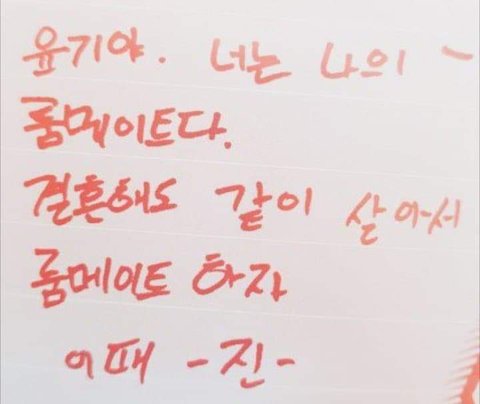 윤기야. 너는 나의 ~
룸메이트다.
결혼해도 같이 살아서
룸메이트 하자
어때 -진-